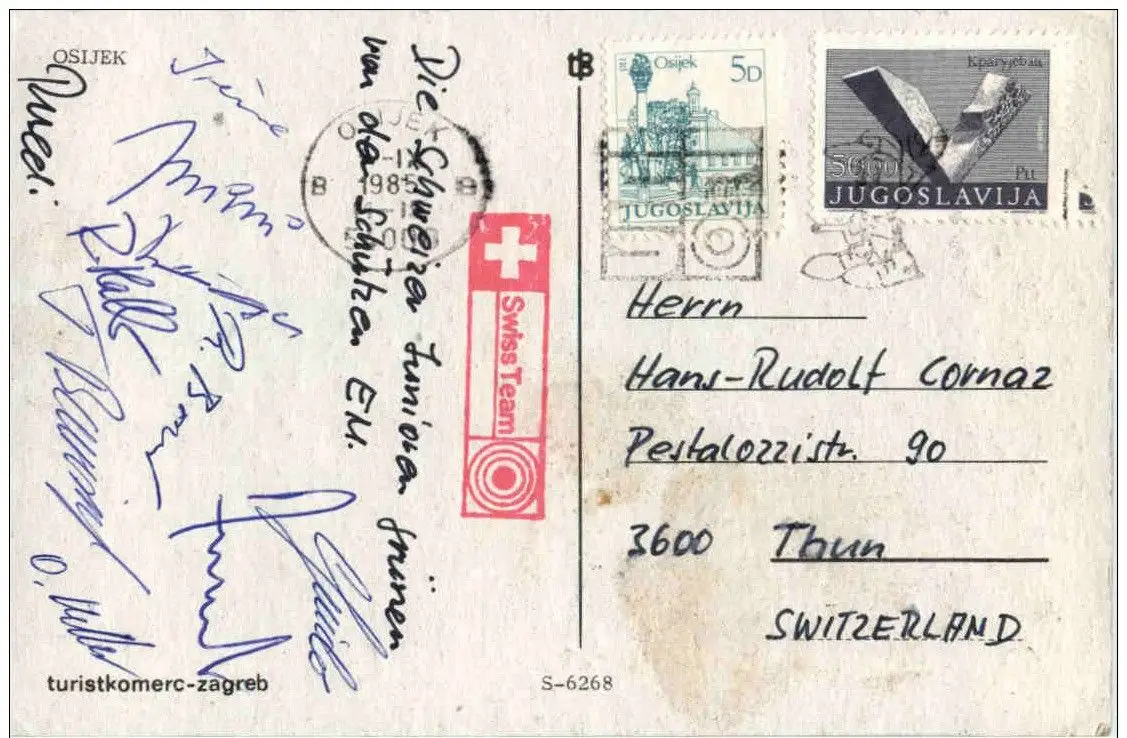 OSIJEK
Die Schweizer Junioren grüssen
von der Schützen EM.
Ruedi.
Irène
Guido
OSIJEK
1985
B B
Swiss Team
Osijek
5D
JUGOSLAVIJA
50,00
JUGOSLAVIJA
Herrn
Hans-Rudolf Cornaz
Pestalozzistr. 90
3600 Thun
SWITZERLAND
turistkomerc-zagreb
S-6268